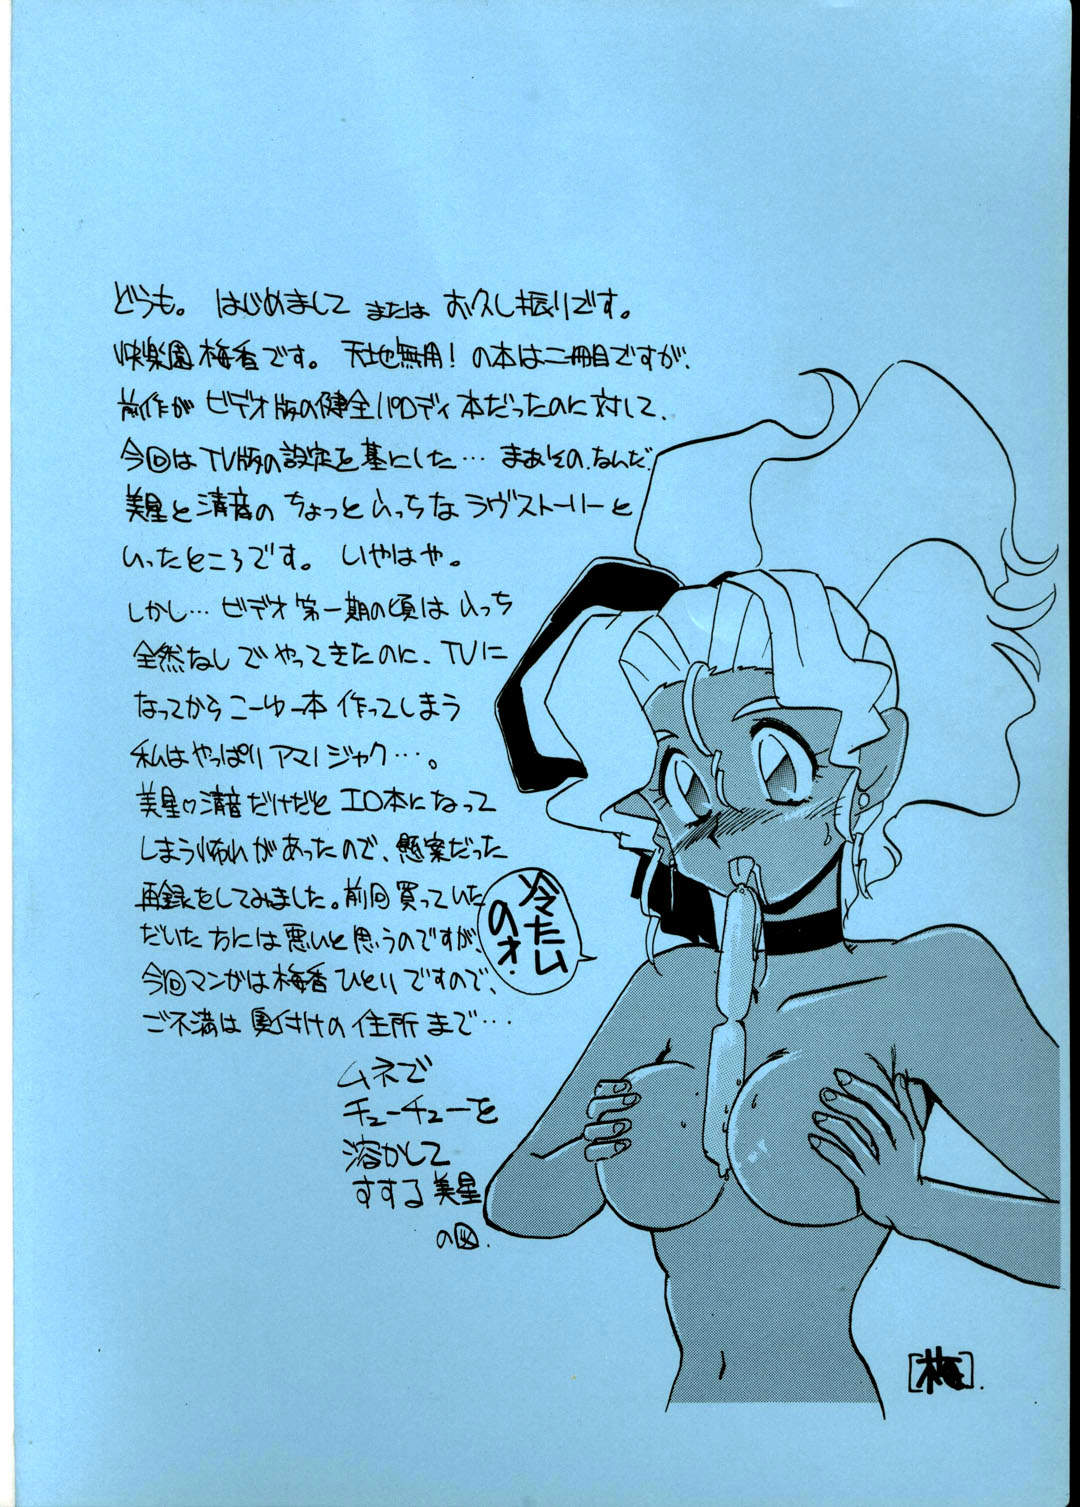 どうも。はじめまして または お久し振りです。
快楽園梅香です。天地無用！の本は二冊目ですが、
前作が ビデオ版の健全パロディ本だったのに対して、
今回は TV版の設定を基にした… まあその、なんだ
美星と清音の ちょっと えっちな ラヴストーリーと
いったところです。 いやはや。
しかし… ビデオ 第一期の頃は えっち
全然なしで やってきたのに、TVに
なってから こーゆー本 作ってしまう
私は やっぱり アマノジャク…。
美星♡清音だけだと エロ本になって
しまう怖れがあったので、懸案だった
再録をしてみました。前回買っていた
だいた方には悪いと思うのですが、
今回マンガは梅香ひとりですので、
ご不満は奥付けの住所まで…
冷たム
のォ.
ムネで
チューチューを
溶かして
すする美星
の図.
[梅].